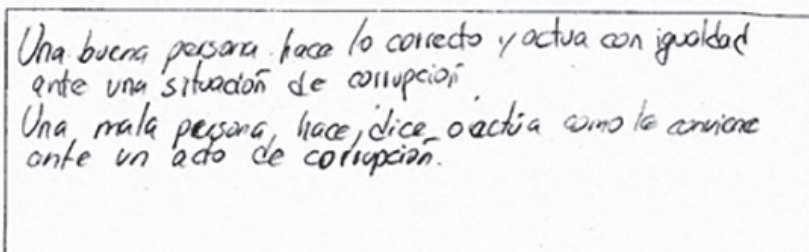 Una buena persona hace lo correcto y actua con igualdad
ante una situación de corrupción.
Una mala persona, hace, dice o actúa como le conviene
ante un acto de corrupción.